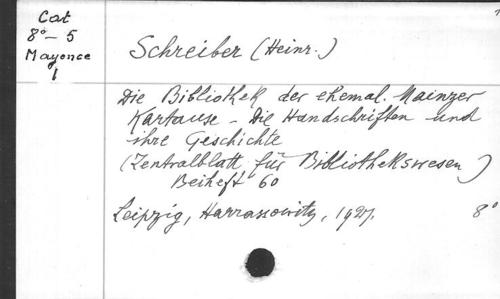 Cat
8° - 5
Mayence
1
Schreiber (Heinr.)
Die Bibliothek der ehemal. Mainzer
Kartause - Die Handschriften und
ihre Geschichte
(Zentralblatt für Bibliothekswesen)
Beiheft 60
Leipzig, Harrassowitz, 1927. 8°